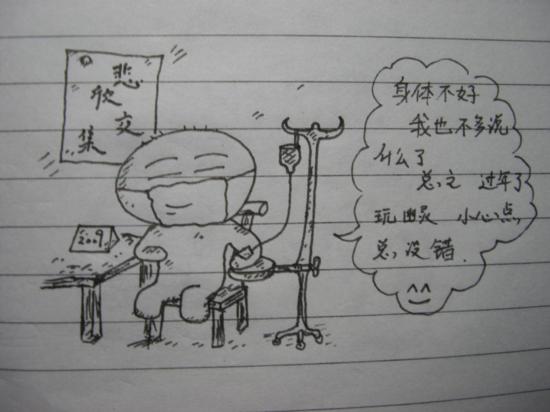 悲
欣
交
集
2009
身体不好
我也不多说
什么了
总之 过年了
玩幽灵 小心点
总没错.